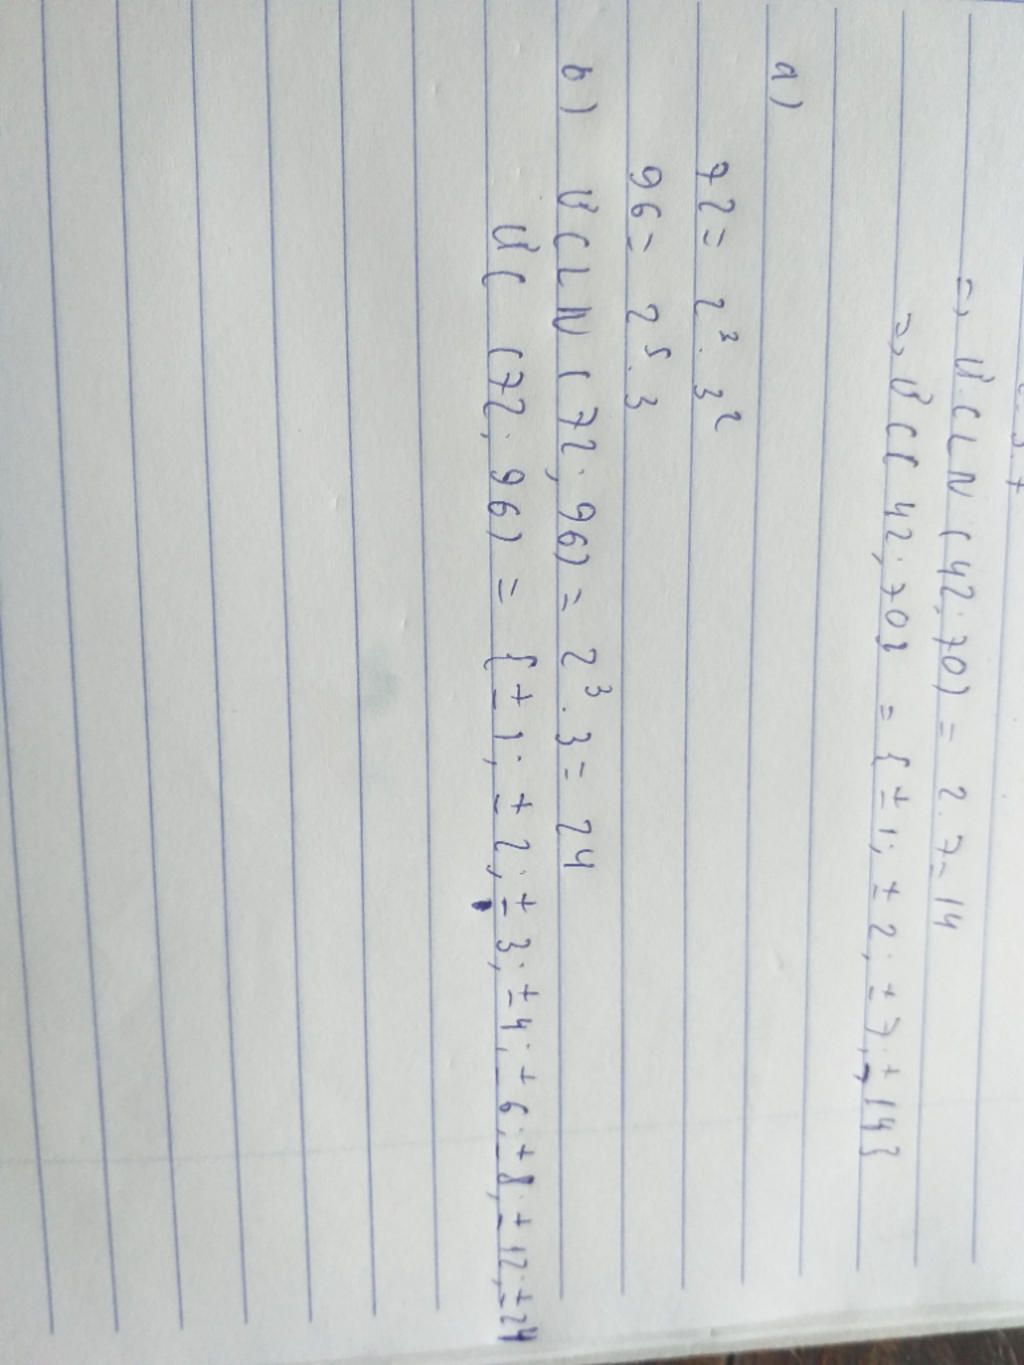 => ƯCLN (42; 70) = 2.7=14
=> ƯC( 42; 70} = {±1; ±2; ±7; ±14}
a)
72= 2³.3²
96= 2⁵.3
b) ƯCLN (72; 96) = 2³.3= 24
ƯC (72; 96) = {±1; ±2; ±3; ±4; ±6; ±8; ±12; ±24